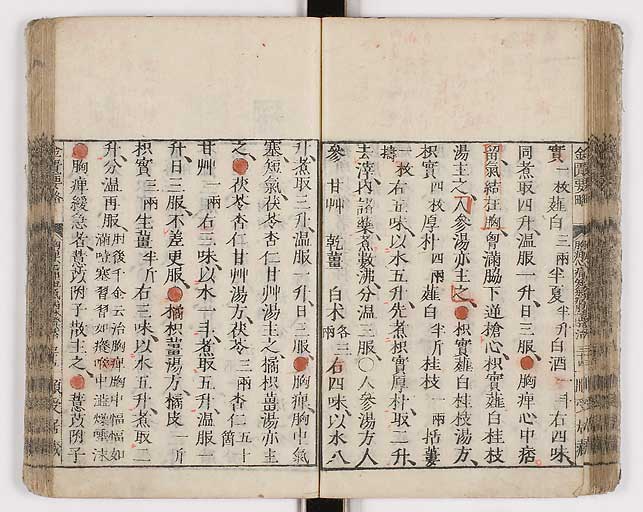 實一枚薤白三兩半夏半升白酒一斗右四味
同煮取四升温服一升日三服胸痺心中痞
留氣結在胸胸滿脇下逆搶心枳實薤白桂枝
湯主之人參湯亦主之枳實薤白桂枝湯方
枳實四枚厚朴四兩薤白半斤桂枝一兩括蔞
一枚擣右五味以水五升先煮枳實厚朴取二升
去滓內諸藥煮數沸分温三服○人參湯方人
參甘艸乾薑白朮各三兩右四味以水八
升煮取三升温服一升日三服胸痺胸中氣
塞短氣茯苓杏仁甘艸湯主之橘枳薑湯亦主
之茯苓杏仁甘艸湯方茯苓三兩杏仁五十箇
甘艸一兩右三味以水一斗煮取五升温服一
升日三服不差更服橘枳薑湯方橘皮一斤
枳實三兩生薑半斤右三味以水五升煮取二
升分温再服肘後千金云治胸痺胸中愊愊如滿噎塞習習如痒喉中澁燥唾沫
胸痺緩急者薏苡附子散主之薏苡附子